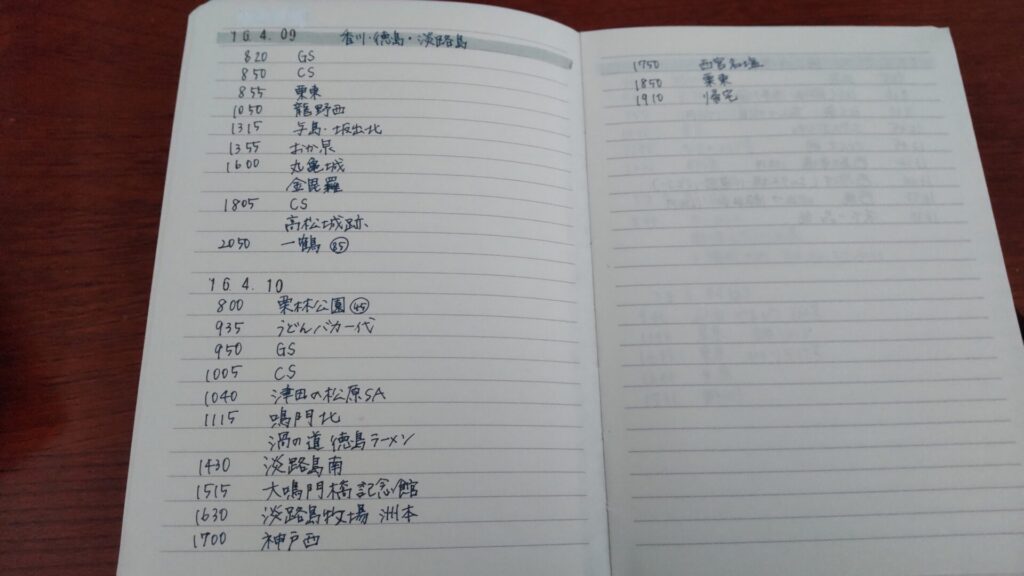 '16.4.09 香川・徳島・淡路島
820 GS
850 CS
855 栗東
1050 龍野西
1315 与島・坂出北
1355 おか泉
1600 丸亀城
金毘羅
1805 CS
高松城跡
2050 一鶴
'16.4.10
800 栗林公園 45
935 うどんバカ一代
950 GS
1005 CS
1040 津田の松原SA
1115 鳴門北
渦の道 徳島ラーメン
1430 淡路島南
1515 大鳴門橋記念館
1630 淡路島牧場 洲本
1700 神戸西
1750 西宮名塩
1850 栗東
1910 帰宅